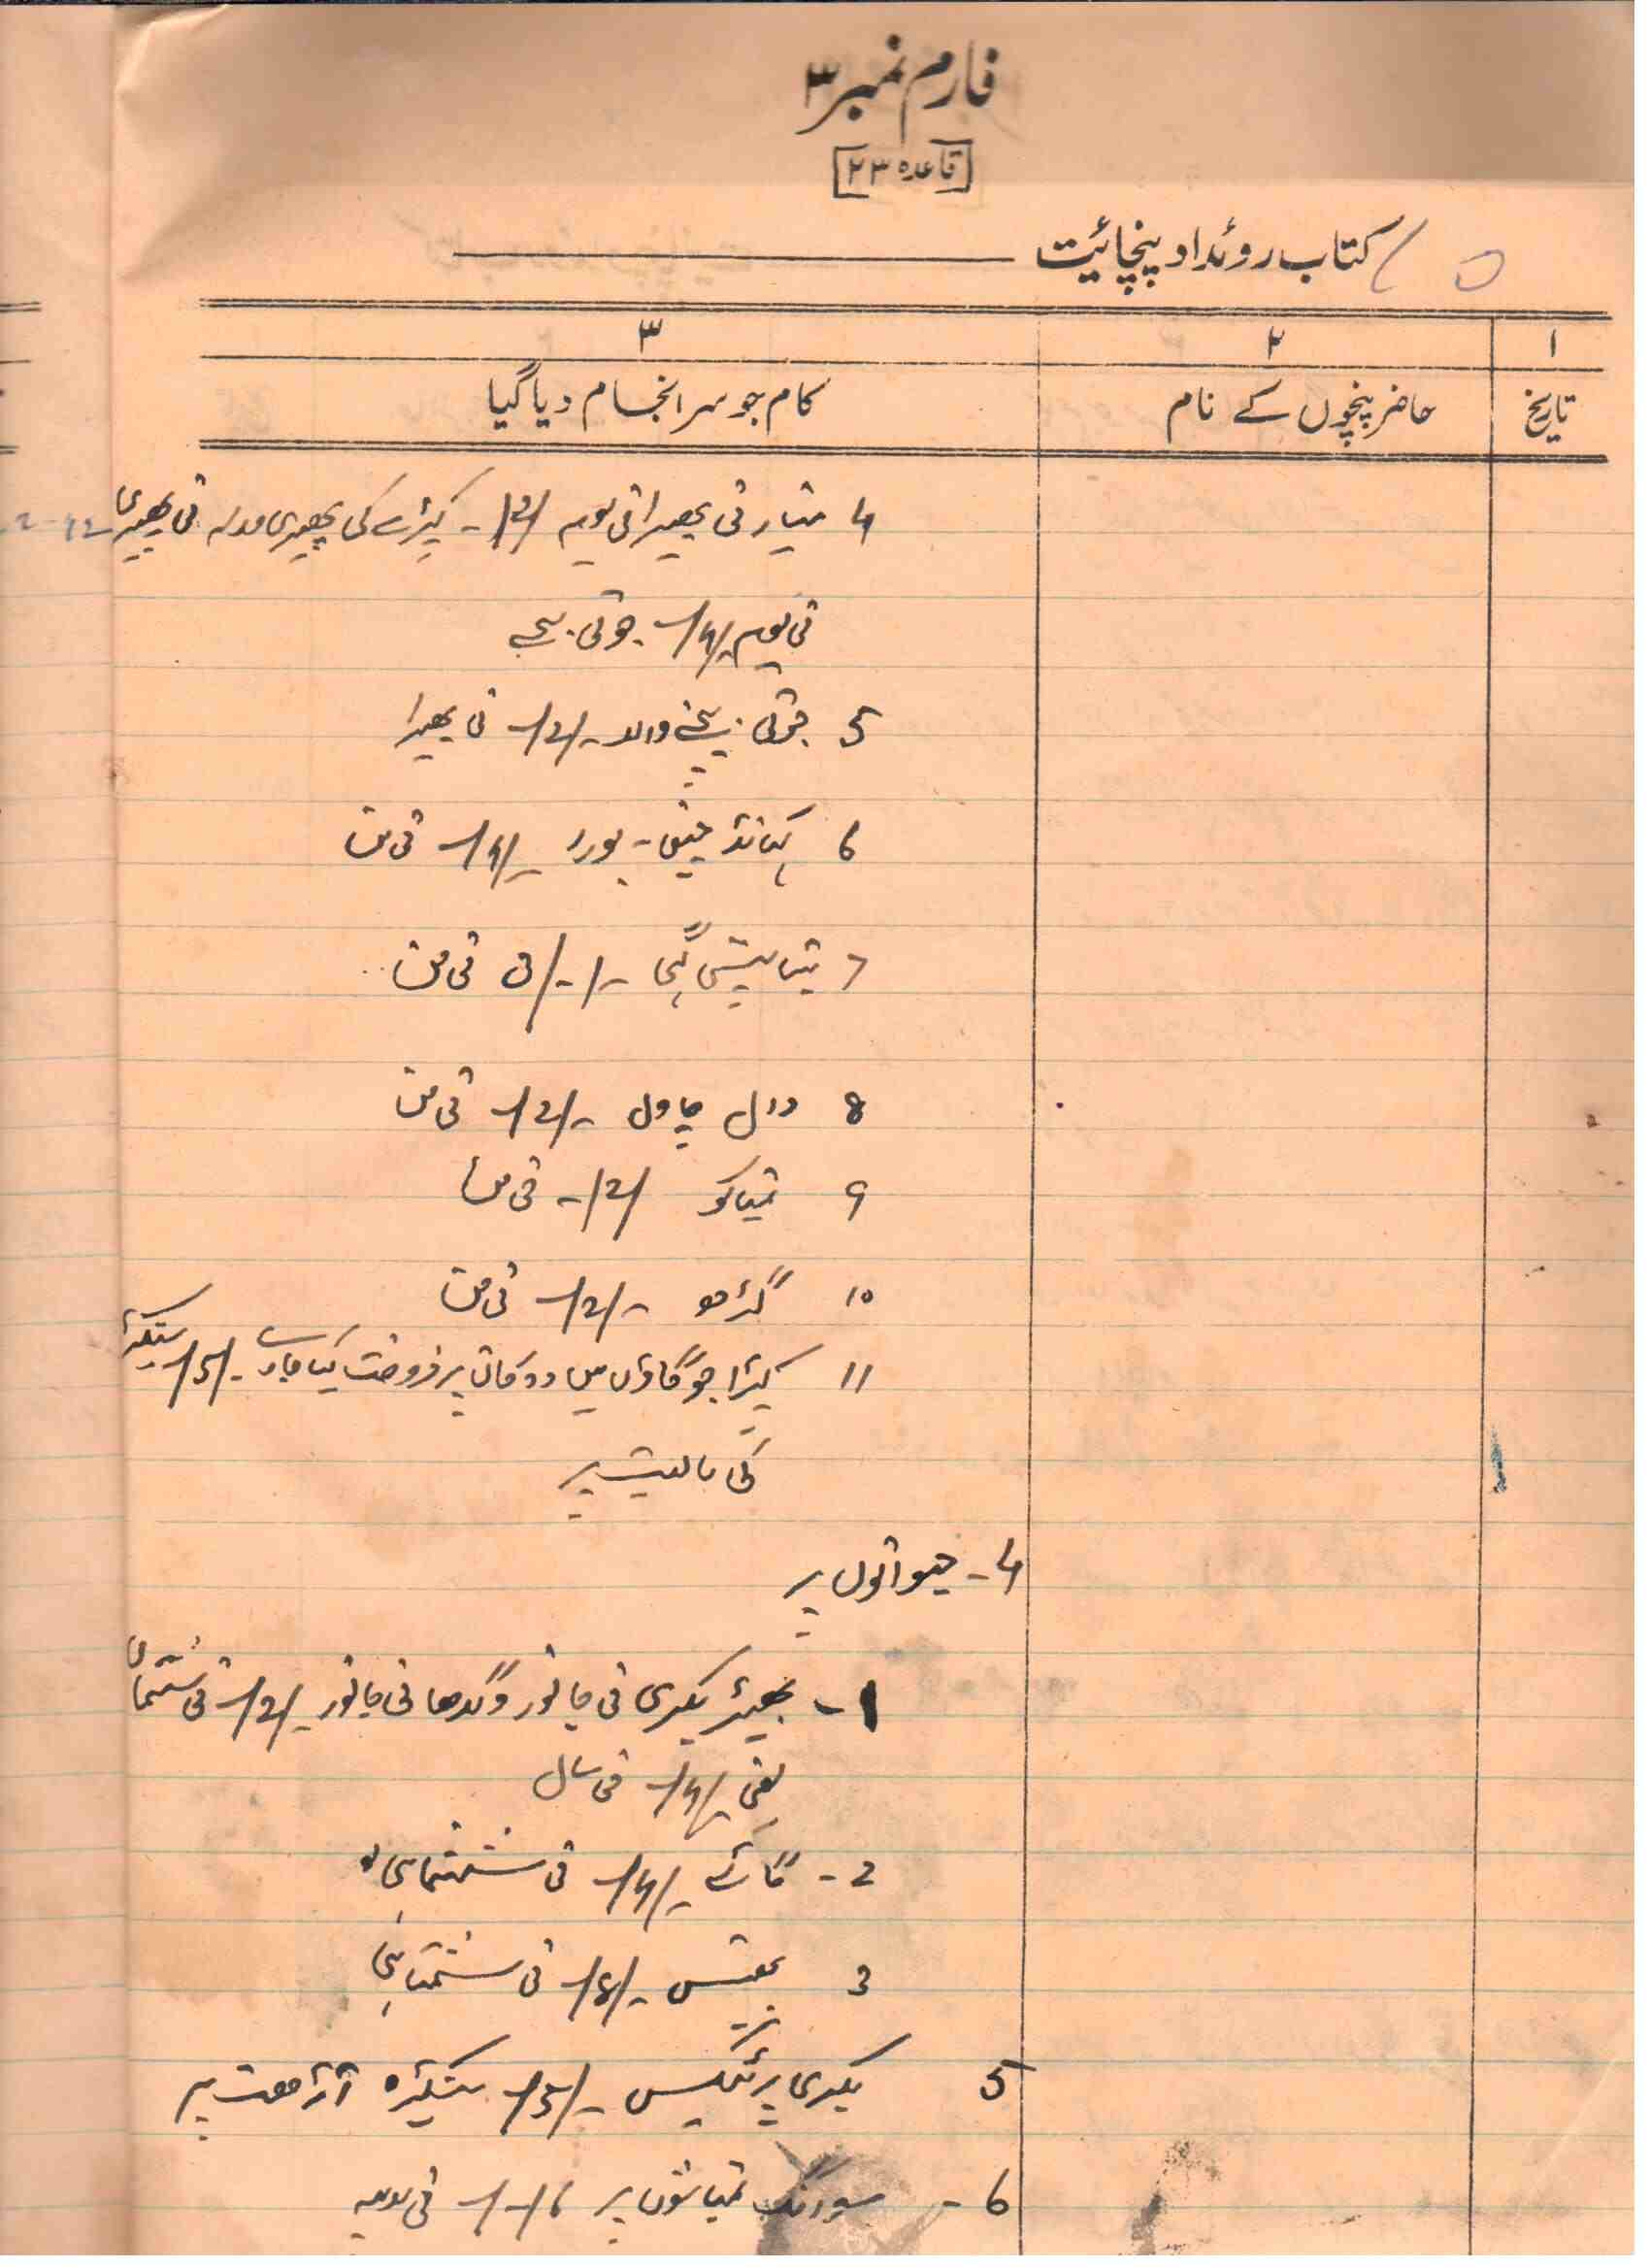 فارم نمبر ۳
[قاعدہ ۲۳]
کتاب روئداد پنچائیت
۱ ۲ ۳
تاریخ حاضر پنچوں کے نام کام جو سر انجام دیا گیا
4 فی پھیرا فی یوم /2/- کپڑے کی پھیری والا فی پھیری
فی یوم -/4/- جوتی
5 جوتی بیچنے والا -/2/- فی پھیرا
6 کھانڈ چینی - بورا -/4/- فی من
7 فی من
8 دال چاول -/2/- فی من
9 تمباکو /2/- فی من
10 گڑ -/2/- فی من
11 کپڑا جو گاؤں میں دوکان پر فروخت کیا جاوے -/5/- سینکڑہ
کی مالیت پر
4- حیوانوں پر
1- بھیڑ بکری فی جانور و گدھا فی جانور -/2/- فی ششماہی
یعنی -/4/- فی سال
2- گائے -/4/- فی ششماہی
3 بھینس -/8/- فی ششماہی
5 بکری پر ٹیکس -/5/- سینکڑہ آڑھت پر
6- سوانگ تماشوں پر